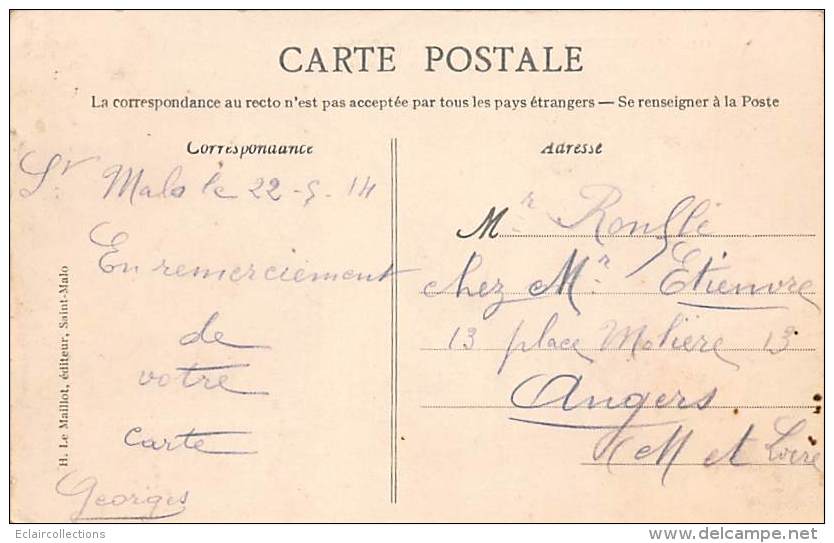 CARTE POSTALE
La correspondance au recto n'est pas acceptée par tous les pays étrangers — Se renseigner à la Poste
Correspondance
St Malo le 22-5-14
En remerciement
de
votre
carte
Georges
H. Le Maillot, éditeur, Saint-Malo
Adresse
Mr
chez Mr Etienvre
13 place Molière 13
Angers
M et Loire
Eclaircollections
delcampe.net